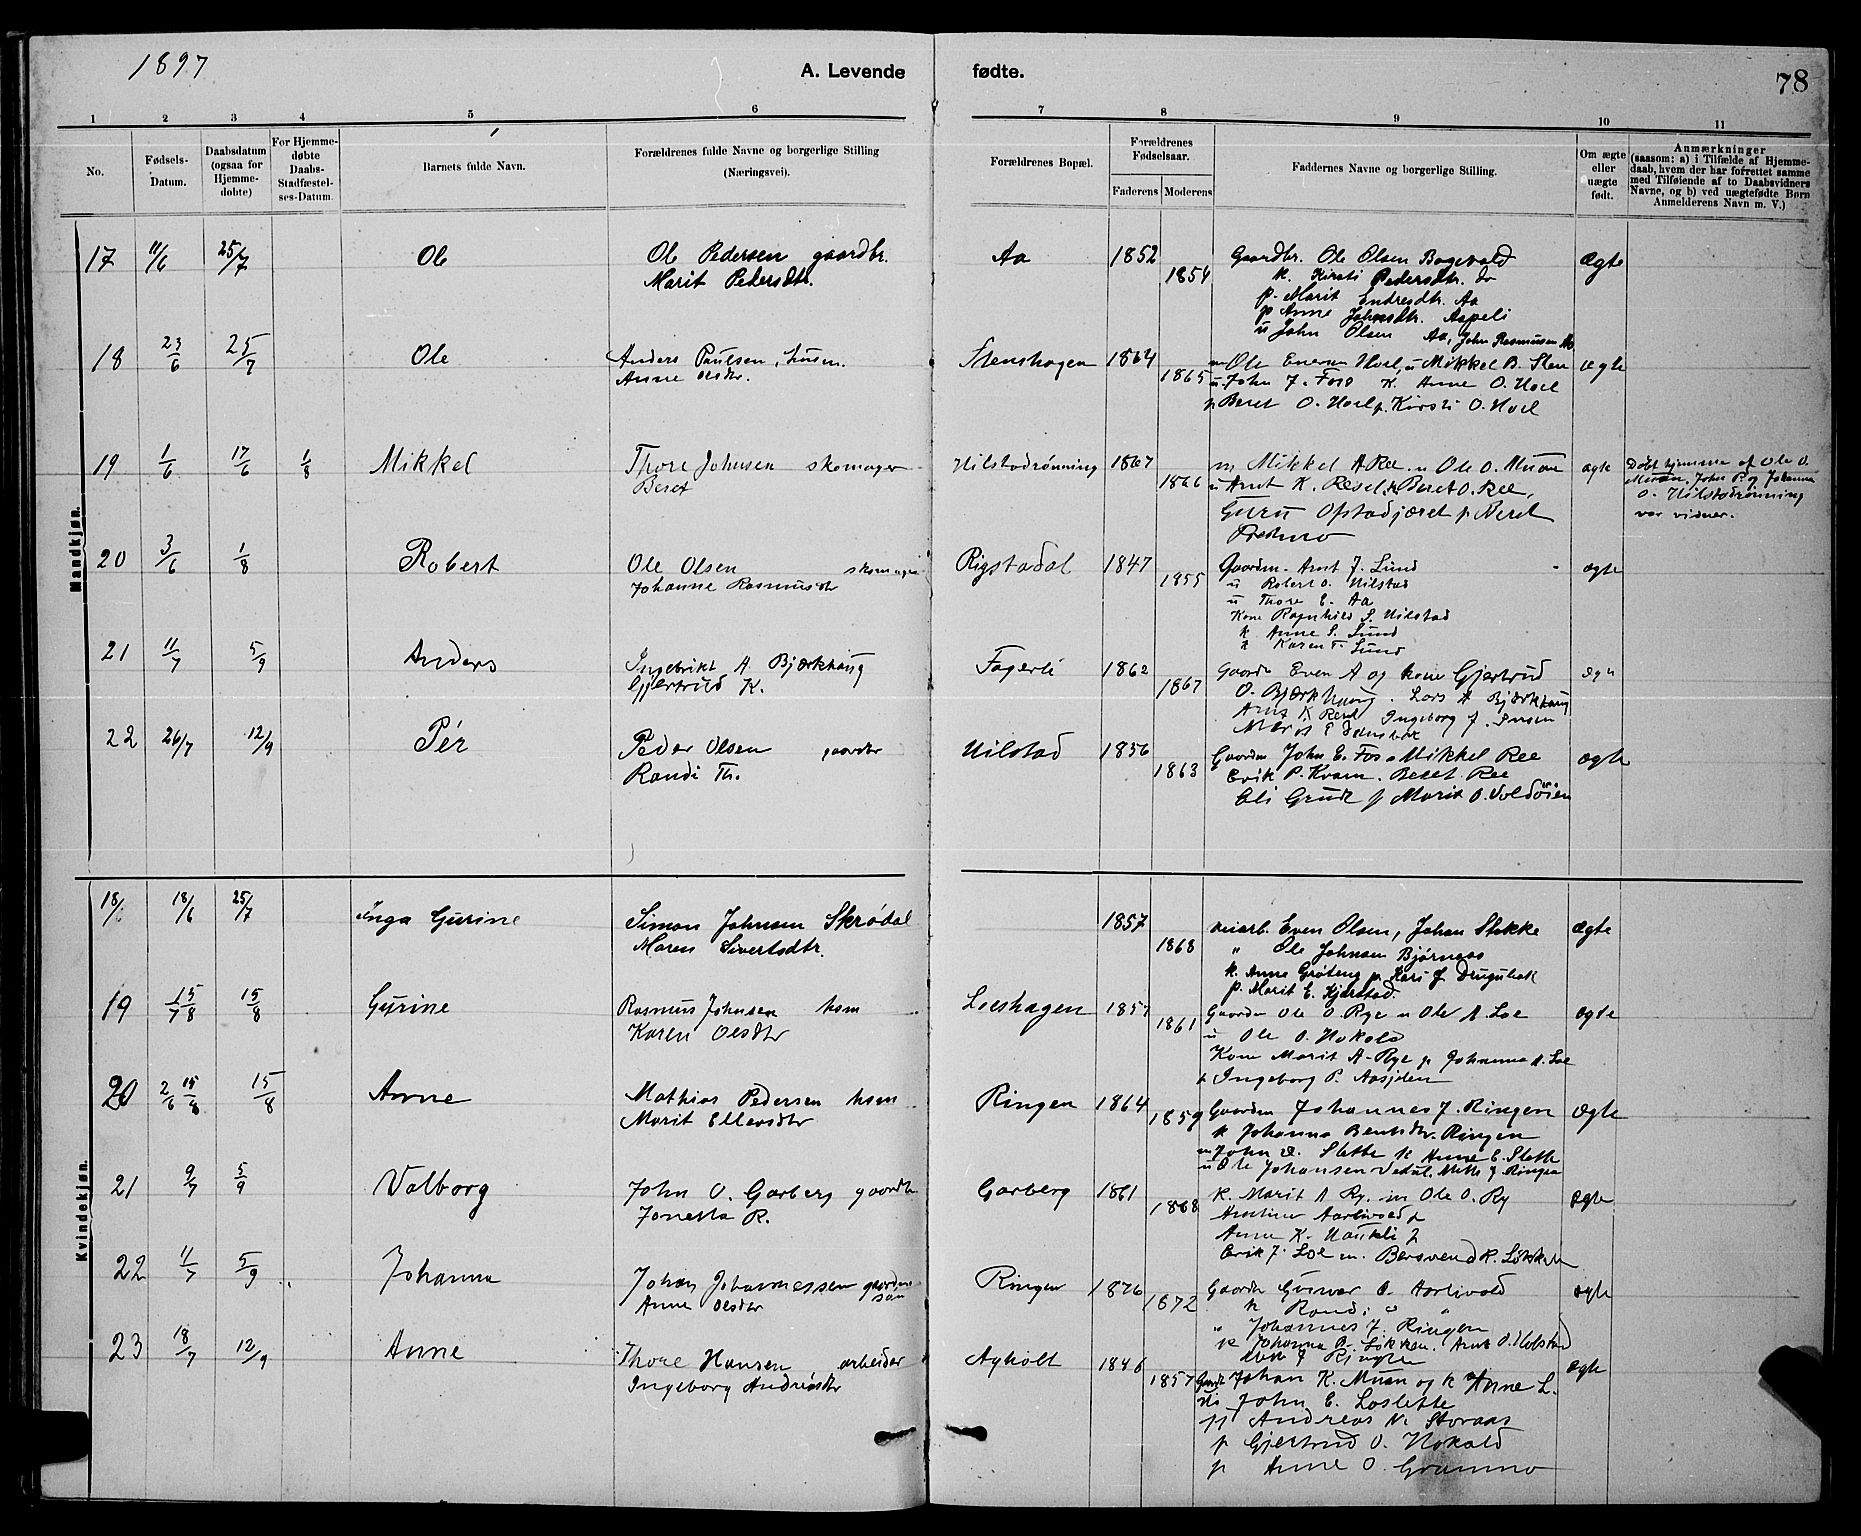 1897
A. Levende fødte.
78
1 2 3 4 5 6 7 8 9 10 11
No.
Fødsels-Datum.
Daabsdatum (ogsaa for Hjemmedøbte)
For Hjemmedøbte Daabs-Stadfæstelses-Datum.
Barnets fulde Navn.
Forældrenes fulde Navne og borgerlige Stilling (Næringsvei).
Forældrenes Bopæl.
Forældrenes Fødselsaar.
Faderens Moderens
Faddernes Navne og borgerlige Stilling.
Om ægte eller uægte født.
Anmærkninger (saasom: a) i Tilfælde af Hjemmedaab, hvem der har forrettet samme med Tilføiende af to Daabsvidners Navne, og b) ved uægtefødte Børn Anmelderens Navn m. V.)
Mandkjøn.
17 11/6 25/7 Ole Ole Pedersen gaardbr. Aa 1852 Gaardbr. Ole Olsen Bagevold Ægte
Marit Pedersdtr. 1854 k. Kirsti Pedersdtr. do
p. Marit Endresdtr. Aa
p Anne Johnsdtr. Aspeli
u John Olsen Aa, John Rasmussen Aa
18 23/6 25/7 Ole Anders Paulsen, husm. Stenshagen 1864 m Ole Hoel, u Mikkel B. Sten ægte
Anne Olsdtr. 1865 u John J. Foss K. Anne O. Hoel
p Beret O. Hoel p. Kirsti O. Hoel
19 1/6 17/6 1/8 Mikkel Thore Johnsen skomager Uilstadrønning 1867 m Mikkel A Ree u Ole O. Muan ægte Døbt hjemme af Ole O.
Beret 1866 u Arnt K. Resel k Beret O. Ree, Muan. John P. og Johanna
Guru Opstadjæret p Beret O. Uilstadrønning
var vidner.
20 3/6 1/8 Robert Ole Olsen skomager Rigstadal 1847 Gaardm. Arnt J. Lund ægte
Johanne Rasmusdtr 1855 u Robert O. Uilstad
u Thore E. Aa
Kone Ragnhild S. Uilstad
k Anne S. Lund
k Karen T. Lund
21 11/7 5/9 Anders Ingebrikt A. Bjørkhaug Fagerli 1862 Gaardm Even A og kone Gjertrud ægte
Gjertrud K. 1867 O. Bjørkhaug. Lars A Bjørkhaug
Arnt K Resel Ingeborg J.
Marit E
22 26/7 12/9 Pér Peder Olsen gaardbr Uilstad 1856 Gaardm John E. Fos u Mikkel Ree ægte
Randi Th. 1863 Erik P. Kvam. Beret Ree
Eli Grut p Marit O. Voldøien
Kvindekjøn.
18 18/6 25/7 Inga Gurine Simon Johnsen Skrødal 1857 Even Olsen, Johan Stokke Ægte
Maren Sivertsdtr. 1868 " Ole Johnsen Bjørnaas
k. Anne Grøteng p Kari J Drugubak
p. Marit E. Kjørstad.
19 15/7 8 15/8 Gurine Rasmus Johnsen hsm Loeshagen 1857 Gaardm Ole O. Rye u Ole A. Loe ægte
Karen Olsdtr 1861 u Ole O. Hokold
Kone Marit A. Rye p Johanna A. Loe
p Ingeborg P. Aasjelen
20 2/6 15/8 15/8 Anne Mathias Pedersen hsm Ringen 1864 Gaardm Johannes J. Ringen Ægte
Marit Ellevsdtr 1859 k Johanna Bentsdtr. Ringen
m John Slette k Anne E. Slette
u Ole Johansen Mette J Ringen
21 9/7 5/9 Valborg John O. Garberg gaardbr Garberg 1861 k. Marit A Ry. m Ole O. Ry Ægte
Jonetta R. 1868 Aarlivold
Anne K. Haukli
Erik J. Loe m. Bersvend R. Løkken
22 11/7 5/9 Johanna Johan Johannessen gaardmsøn Ringen 1876 Gaardm O. Aarlivold ægte
Anne Olsdtr 1872 k Randi " "
" Johannes J. Ringen
k Johanna O. Løkken. O. Holstad
J Ringen
23 18/7 12/9 Anne Thore Hansen arbeider Agholt 1846 Johan K. Muan og k Anne L. Ægte
Ingeborg Andersdtr 1857 John E. Loslette
Andreas N. Storaas
p Gjertrud O. Hokold
p Anne O. Gramno